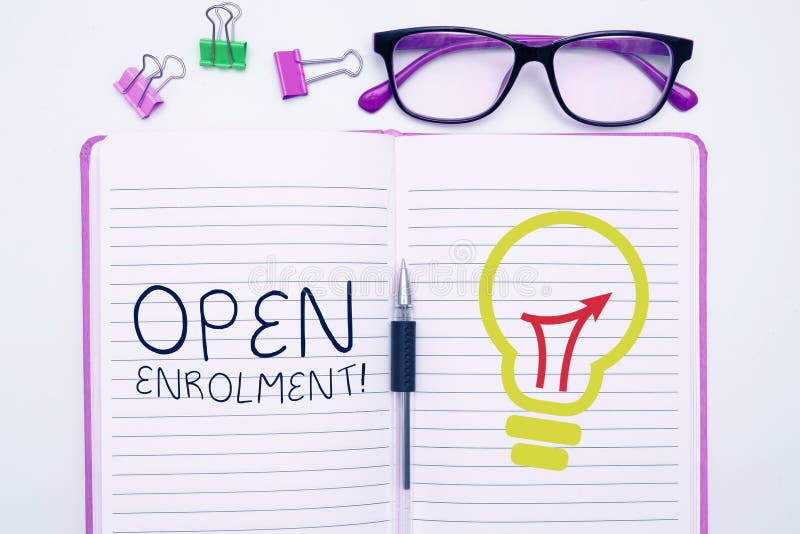 OPEN
ENROLMENT!